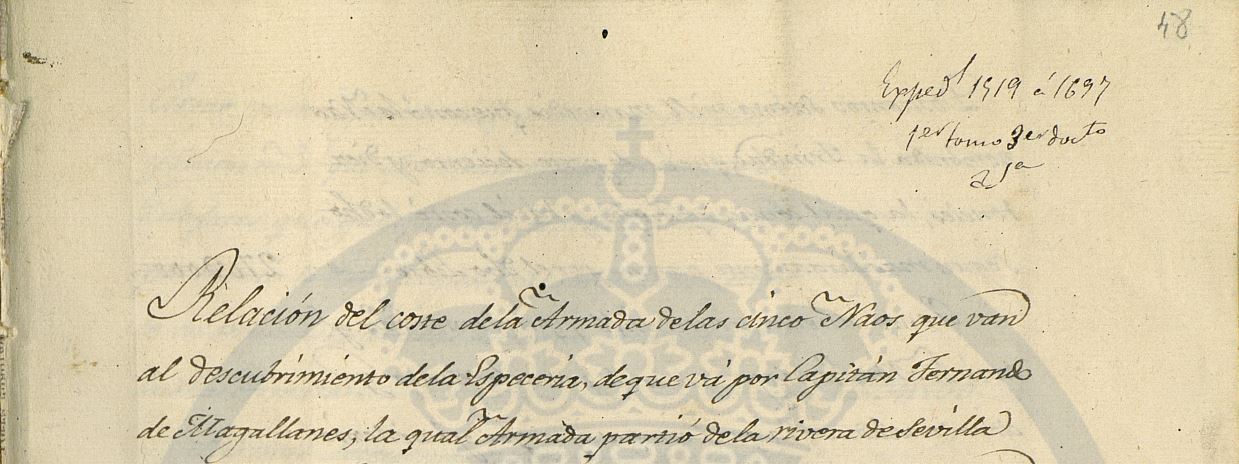 48
Expedte 1519 á 1697
1er tomo 3er docto
Relación del coste dela Armada delas cinco Naos que van
al descubrimiento dela Especería, deque vá por Capitán Fernando
de Magallanes, la qual Armada partió dela rivera de Sevilla